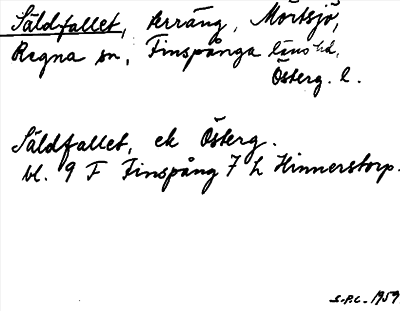 Säldfallet, terräng, Mörtsjö,
Regna sn, Finspånga läns hd,
Österg. l.
Säldfallet, ek Österg.
bl. 9 F Finspång 7 h Hinnerstorp.
S.P.C. 1959